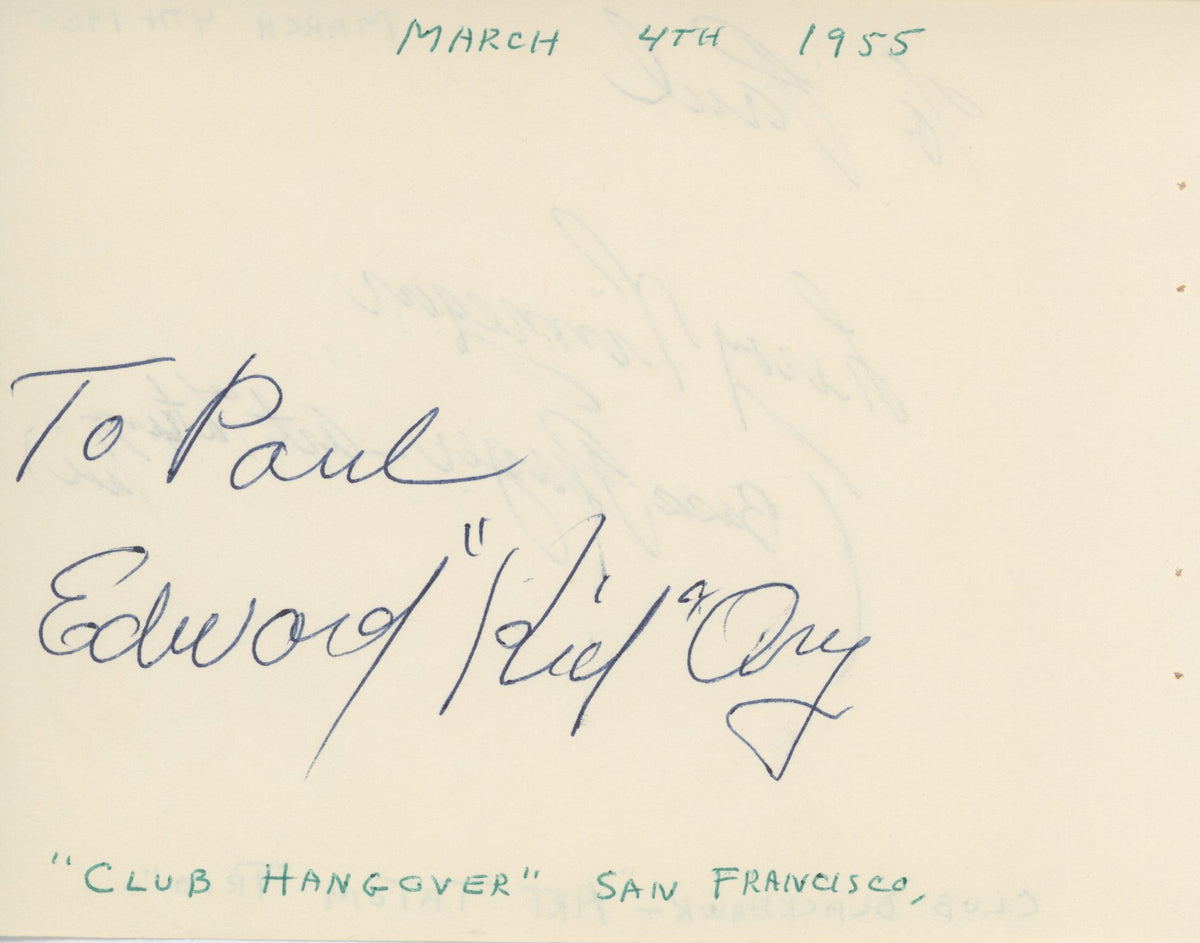 MARCH 4TH 1955
To Paul
Edward "Kid" Ory
"CLUB HANGOVER" SAN FRANCISCO,